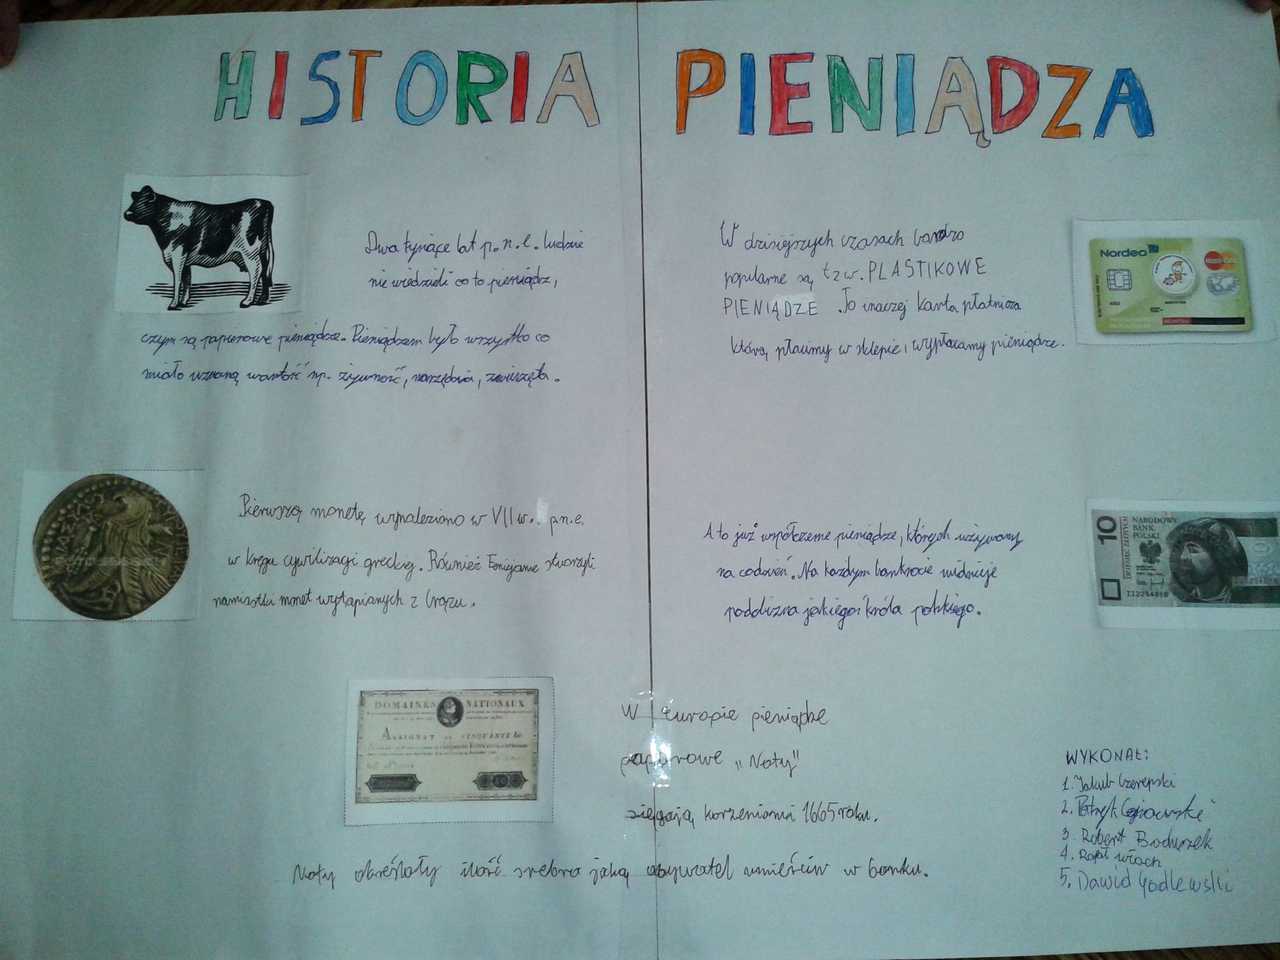 HISTORIA PIENIĄDZA
Dwa tysiące lat p.n.e. ludzie
nie wiedzieli co to pieniądz,
czym są papierowe pieniądze. Pieniądzem było wszystko co
miało uznaną wartość np. żywność, narzędzia, zwierzęta.
Pierwszą monetę wynaleziono w VII w. p.n.e.
w kręgu cywilizacji greckiej. Również Fenicjanie stworzyli
namiastki monet wytapianych z brązu.
DOMAINES NATIONAUX
ASSIGNAT DE CINQUANTE
W Europie pieniądze
papierowe „Noty"
sięgają korzeniami 1665 roku.
Noty określały ilość srebra jaką obywatel umieścił w banku.
W dzisiejszych czasach bardzo
popularne są tzw. PLASTIKOWE
PIENIĄDZE. To inaczej karta płatnicza
którą płacimy w sklepie i wypłacamy pieniądze.
Nordea
MasterCard
A to już współczesne pieniądze, których używamy
na codzień. Na każdym banknocie widnieje
podobizna jakiegoś króla polskiego.
10
NARODOWY
BANK
POLSKI
DZIESIĘĆ ZŁOTYCH
WYKONAŁ:
1. Jakub Czerepski
2. Patryk
3. Robert
4. Rafał Włoch
5. Dawid Godlewski